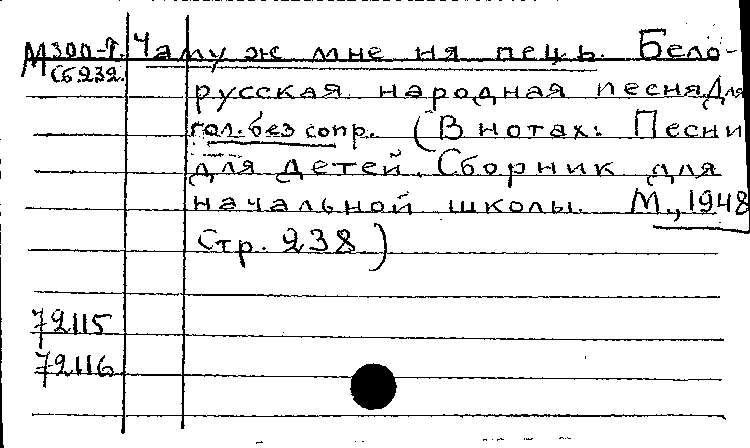 М 300-Т. Чаму ж мне ня пець. Бело-
Сб 232. русская народная песня. Для
гол. без сопр. (В нотах: Песни
для детей. Сборник для
начальной школы. М., 1948
Стр. 238)
72115
72116